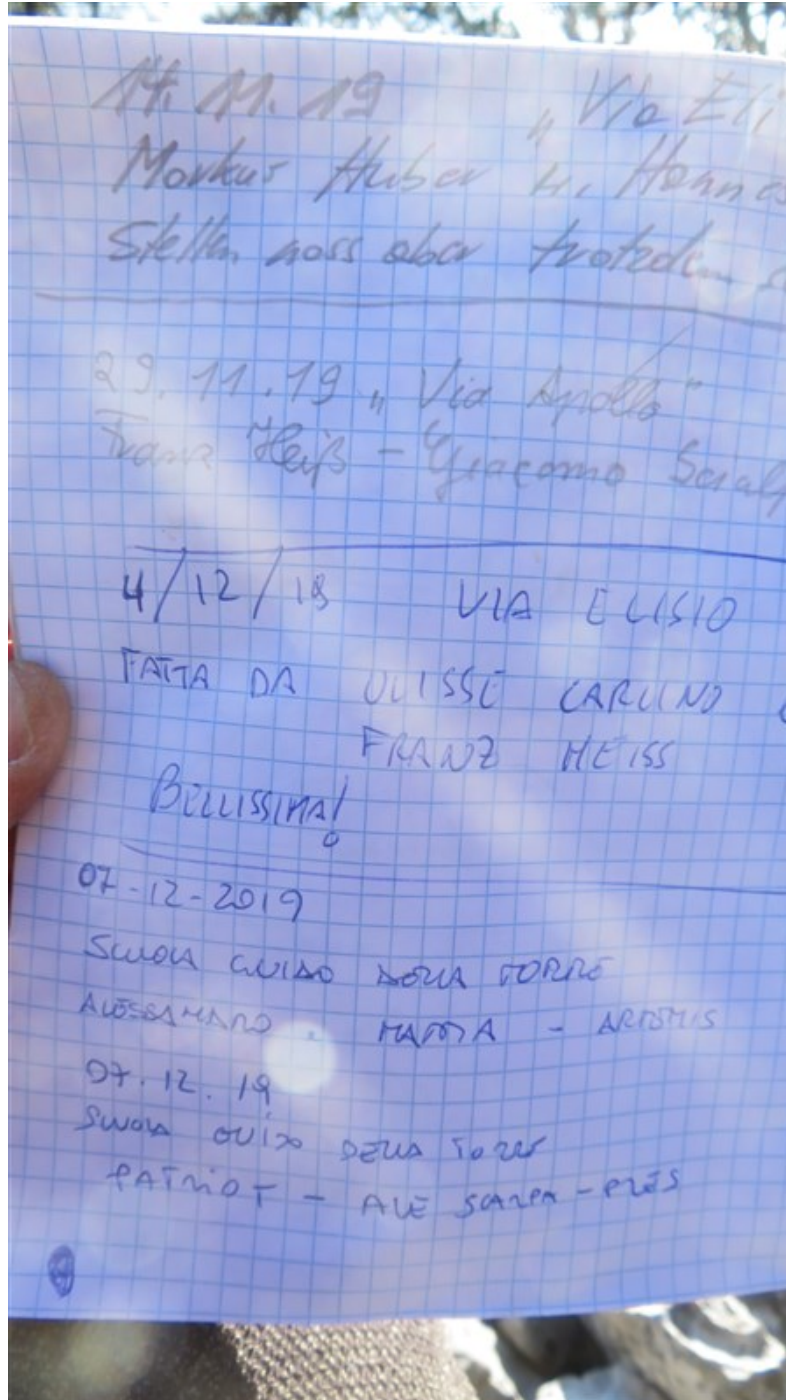 14.11.19 „Via Eli
Markus Huber u. Hannes
Stellen nass aber trotzdem
29.11.19 „Via Apollo"
Franz Heiß - Giacomo
4/12/19 VIA ELISIO
FATTA DA ULISSE CARLINO
FRANZ HEISS
BELLISSIMA!
07-12-2019
SCUOLA GUIDO DELLA TORRE
ALESSANDRO - MATTIA - ARTEMIS
07.12.19
SCUOLA GUIDO DELLA TORRE
PATRIOT - ALE SCARPA - PRES